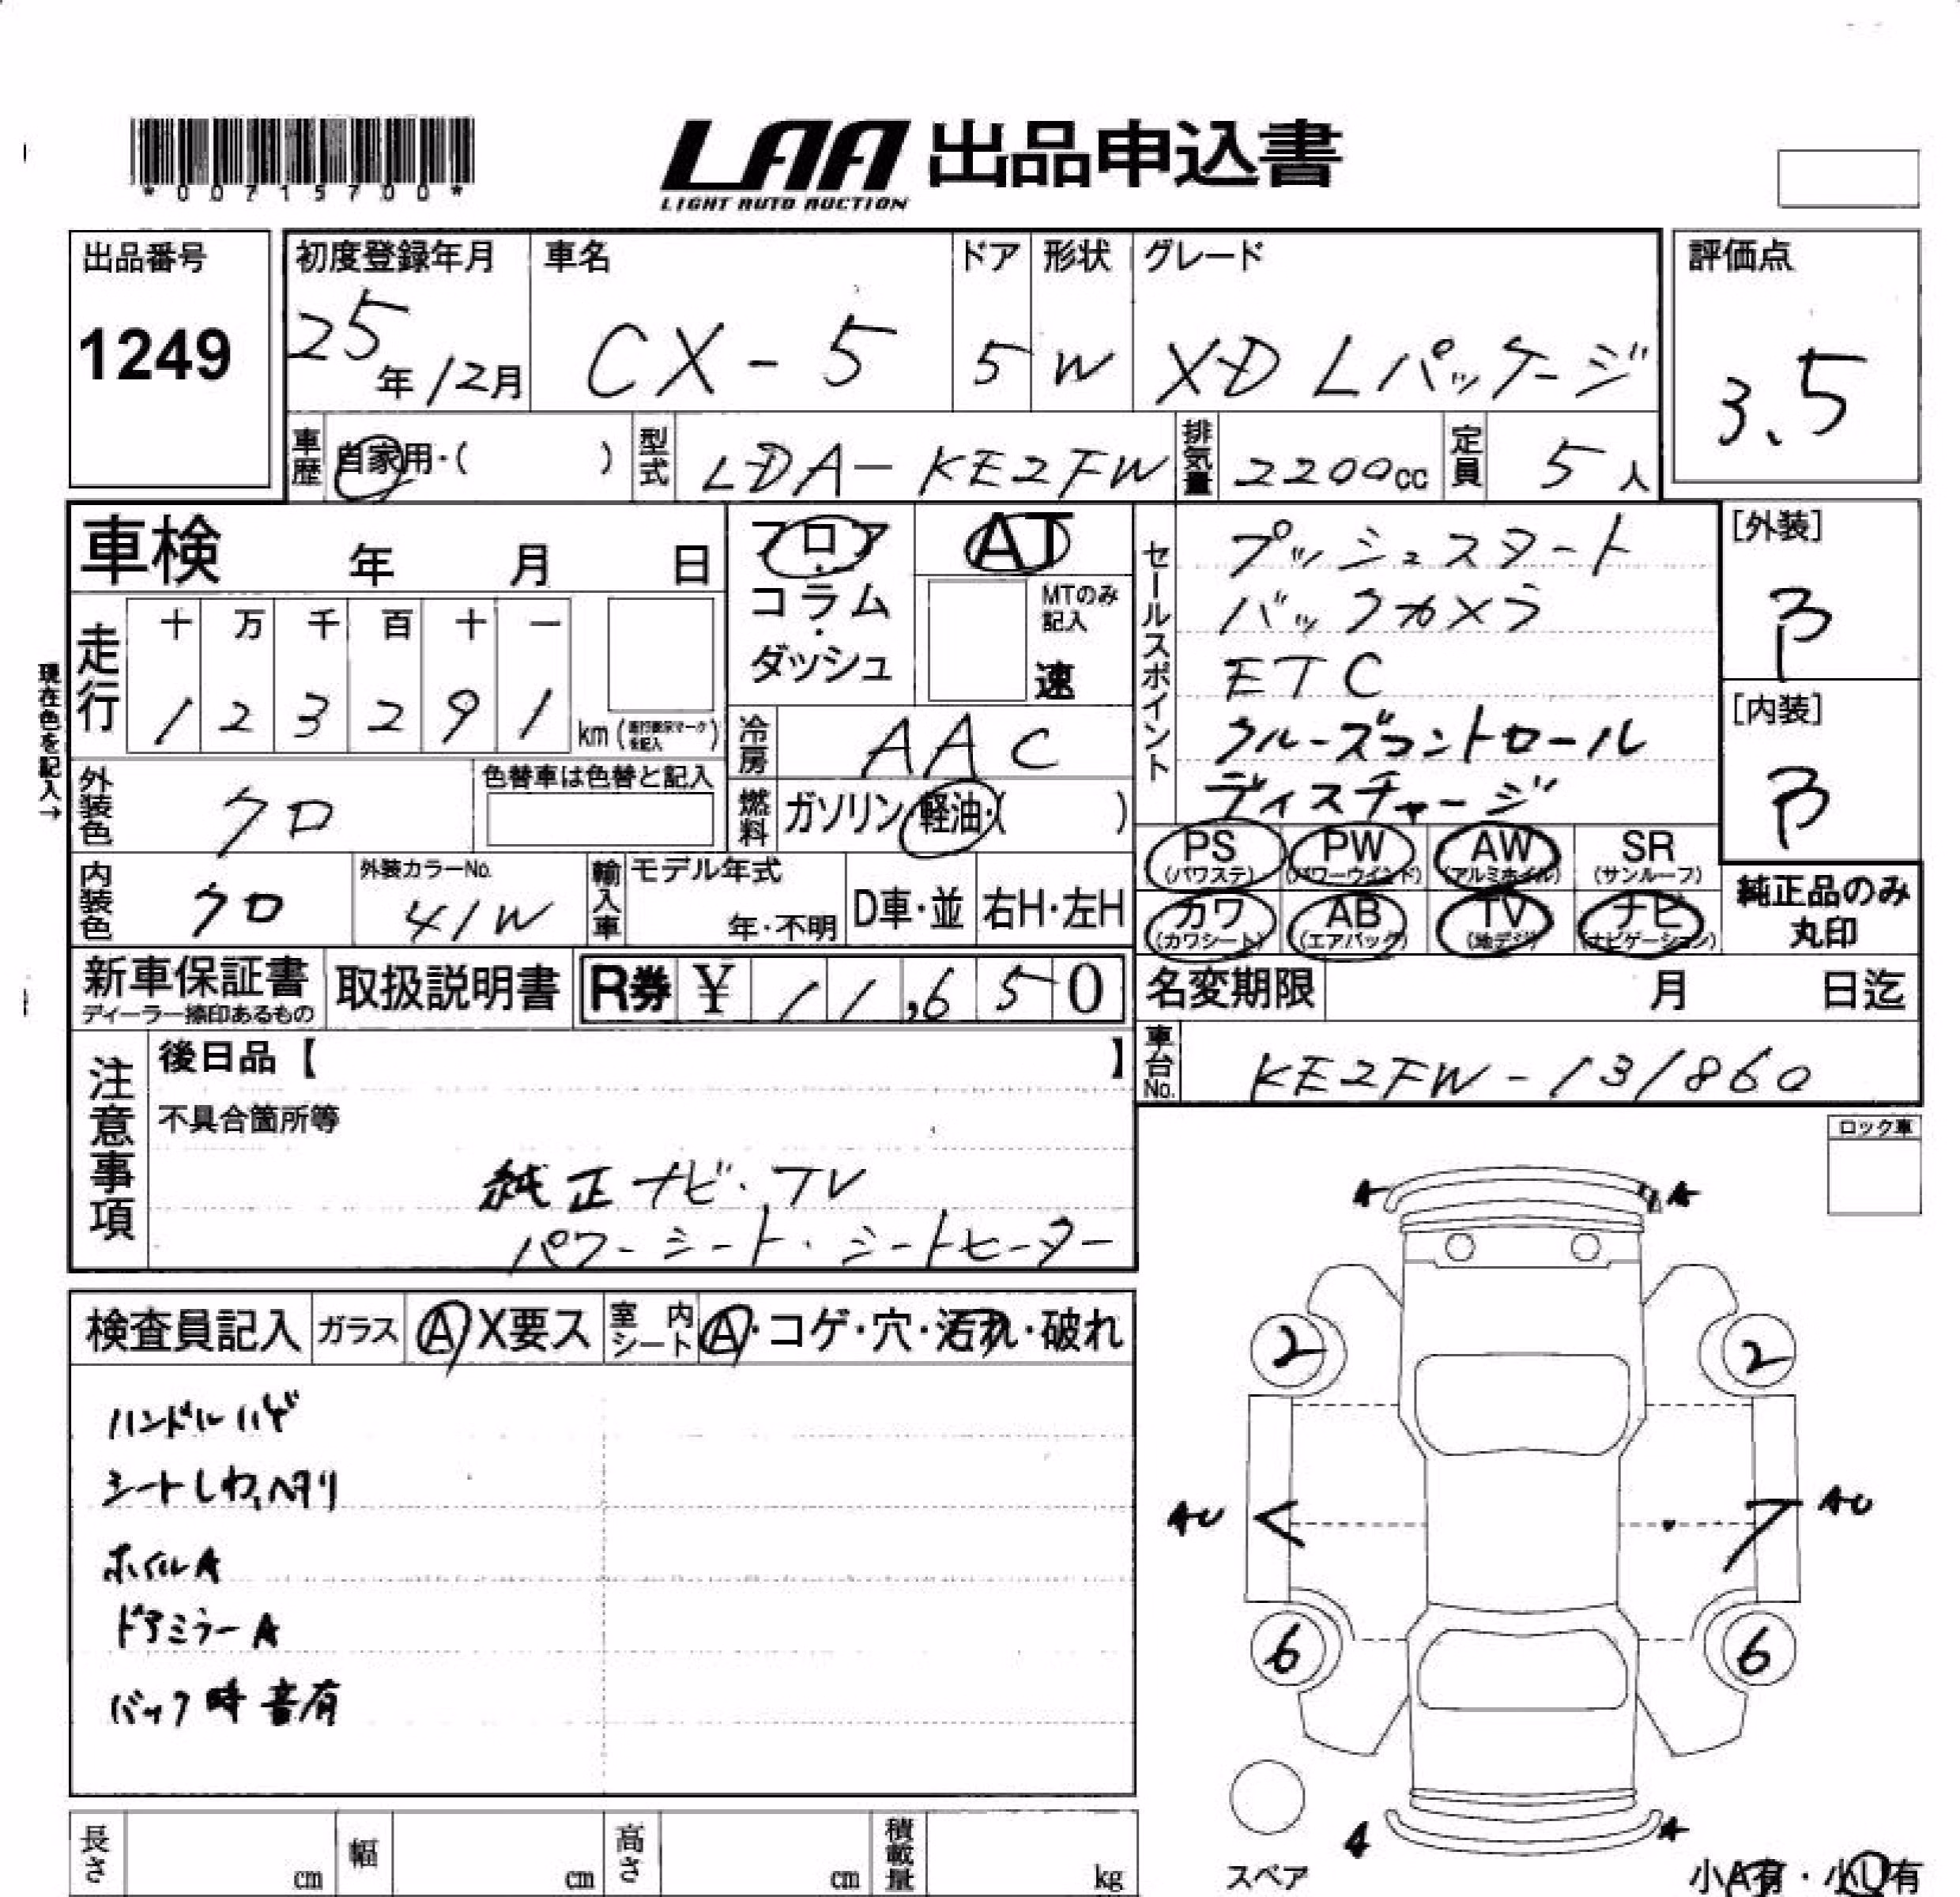 *00715700*
LAA 出品申込書
LIGHT AUTO AUCTION
出品番号
1249
初度登録年月
25年12月
車名
CX-5
ドア
5
形状
W
グレード
XD Lパッケージ
評価点
3.5
車歴
自家用・( )
型式
LDA-KE2FW
排気量
2200cc
定員
5人
車検 年 月 日
フロア・コラム・ダッシュ
AT
MTのみ記入
速
セールスポイント
プッシュスタート
バックカメラ
ETC
クルーズコントロール
ディスチャージ
[外装]
B
[内装]
B
現在色を記入→
走行
十 万 千 百 十 一
1 2 3 2 9 1 km
冷房
AAC
外装色
クロ
色替車は色替と記入
燃料
ガソリン・軽油・( )
内装色
クロ
外装カラーNo.
41W
輸入車
モデル年式
年・不明
D車・並
右H・左H
PS
(パワステ)
PW
(パワーウインド)
AW
(アルミホイル)
SR
(サンルーフ)
カワ
(カワシート)
AB
(エアバッグ)
TV
(地デジ)
ナビ
(ナビゲーション)
純正品のみ
丸印
新車保証書
ディーラー捺印あるもの
取扱説明書
R券 ¥ 11,650
名変期限 月 日迄
車台No.
KE2FW-131860
注意事項
後日品【 】
不具合箇所等
純正ナビ・TV
パワーシート・シートヒーター
ロック車
検査員記入
ガラス
A X要ス
室内シート
A・コゲ・穴・汚れ・破れ
ハンドルハゲ
シートしわ、ヘタリ
ホイルA
ドアミラーA
バック時音有
A A
2 2
AU AU
6 6
A A
スペア
小A有・小U有
長さ cm
幅 cm
高さ cm
積載量 kg